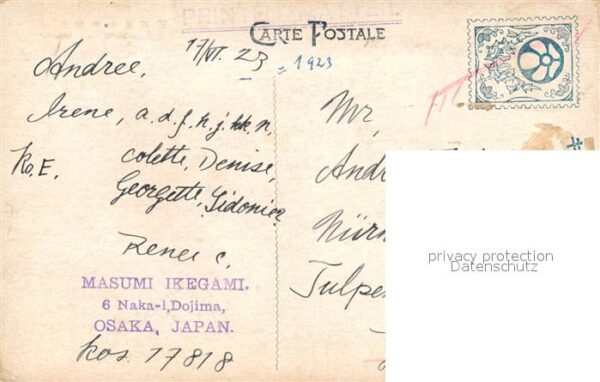 CARTE POSTALE
17/VI. 23
= 1923
Andree,
Irene, a. d. f. h. j. kk. n,
Ko. E. Colette, Denise,
Georgette, Sidonie,
Renee C.
MASUMI IKEGAMI.
6 Naka-1, Dojima,
OSAKA, JAPAN.
Kos. 17818
Mr,
privacy protection
Datenschutz